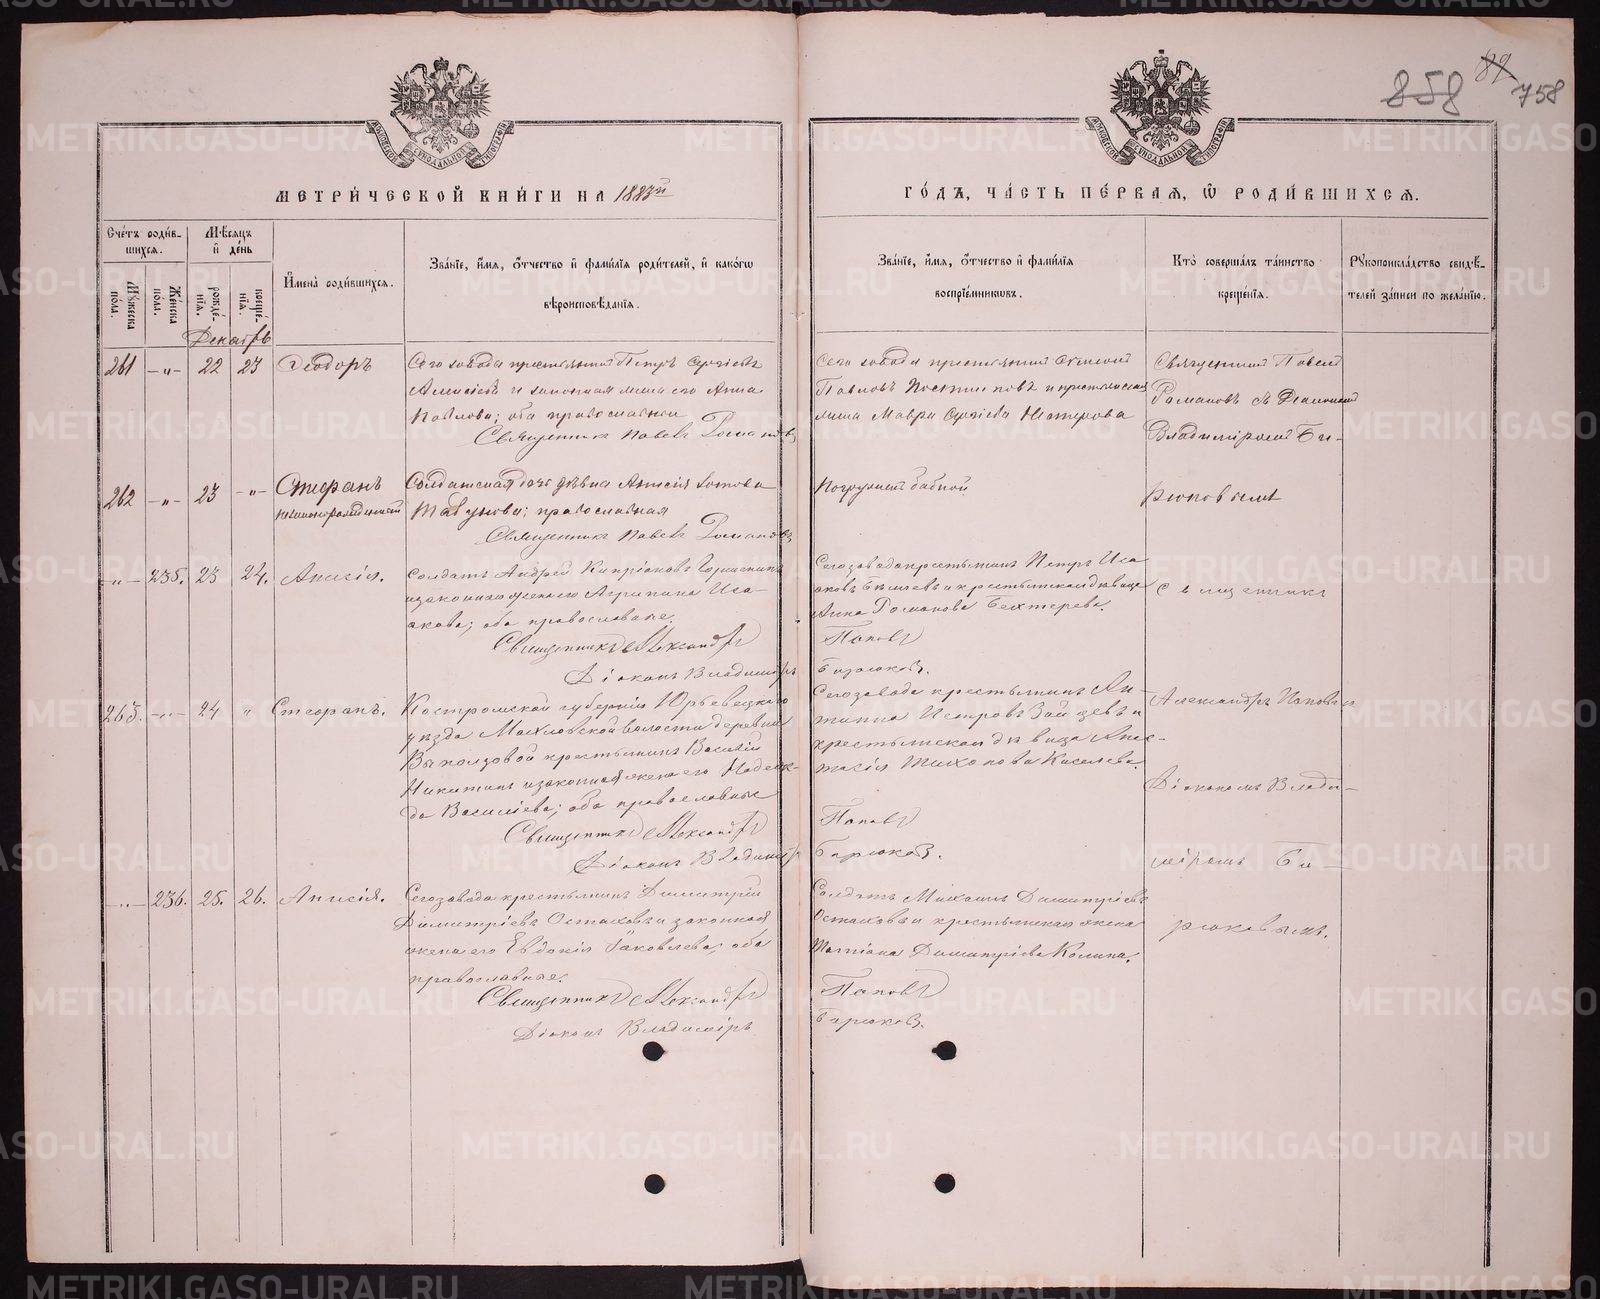 858 89 758
МОСКОВСКОЙ СѴНОДАЛЬНОЙ ТИПОГРАФІИ
МОСКОВСКОЙ СѴНОДАЛЬНОЙ ТИПОГРАФІИ
МЕТРИ́ЧЕСКОЙ КНИ́ГИ НА 1883й
ГО́ДЪ, ЧА́СТЬ ПЕ́РВАЯ, Ѡ РОДИ́ВШИХСЯ.
Сче́тъ роди́вшихся.
Му́жеска по́ла.
Же́нска по́ла.
Мѣ́сяцъ и де́нь
рожде́нія.
креще́нія.
Имена̀ роди́вшихся.
Зва́ніе, и́мя, о́тчество и фами́лія роди́телей, и како́гѡ
вѣроисповѣ́данія.
Зва́ніе, и́мя, о́тчество и фами́лія
воспріе́мникѡвъ.
Кто̀ соверша́лъ та́инство
креще́нія.
Рꙋкоприкла́дство свидѣ́телей за́писи по жела́нію.
Декабрь
261 —„— 22 23 Ѳеодоръ
Сего завода крестьянинъ Петръ Сергіевъ
и законная жена его Анна
Павлова; оба православные
Священникъ Павелъ Романовъ
Сего завода крестьянинъ
Павловъ Постниковъ и крестьянская
жена Мавра Сергіева Нестерова
Священникъ Павелъ
Романовъ съ Діакономъ
Владиміромъ Би-
262 —„— 23 —„— Стефанъ
незаконнорожденный
Солдатская дочь дѣвица Анисія
Табунова; православная
Священникъ Павелъ Романовъ
Погруженъ бабкой
рюковымъ
—„— 235. 23 24. Анисія.
Солдатъ Андрей Кипріановъ
и законная жена его Агрипина Иса-
акова; оба православные.
Священникъ Александръ
Діаконъ Владиміръ
Сего завода крестьянинъ Петръ Иса
аковъ Бѣляевъ и крестьянская дѣвица
Анна Романова Бехтерева.
Поповъ
Бирюковъ.
Священникъ
263. —„— 24 „ Стефанъ.
Костромской губерніи Юрьевецкаго
уѣзда Махловской волости деревни
Выползовой крестьянинъ Василій
Никитинъ и законная жена его Надеж-
да Васильева; оба православные
Священникъ Александръ
Діаконъ Владиміръ
Сего завода крестьянинъ Ан-
типпа Петровъ Зайцевъ и
крестьянская дѣвица Анас-
тасія Тихонова Киселева.
Поповъ
Бирюковъ.
Александръ Поповъ и
Діакономъ Влади-
міромъ Би-
—„— 236. 25. 26. Анисія.
Сего завода крестьянинъ Димитрій
Димитріевъ Остаховъ и законная
жена его Евдокія Іаковлева; оба
православные.
Священникъ Александръ
Діаконъ Владиміръ
Солдатъ Михаилъ Димитріевъ
Остаховъ и крестьянская жена
Татіана Димитріева Колина.
Поповъ
Бирюковъ.
рюковымъ.
METRIKI.GASO-URAL.RU